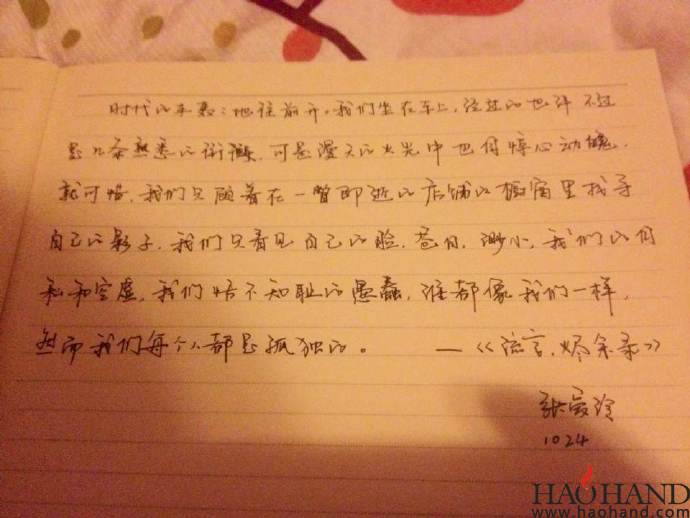 时代的车轰轰地往前开。我们坐在车上，经过的也许不过
是几条熟悉的街衢，可是漫天的火光中也自惊心动魄，
就可惜，我们只顾着在一瞥即逝的店铺的橱窗里找寻
自己的影子，我们只看见自己的脸，苍白，渺小，我们的自
私和空虚，我们恬不知耻的愚蠢，谁都像我们一样，
然而我们每个人都是孤独的。 —《流言，烬余录》
张爱玲
1024
HAOHAND
www.haohand.com